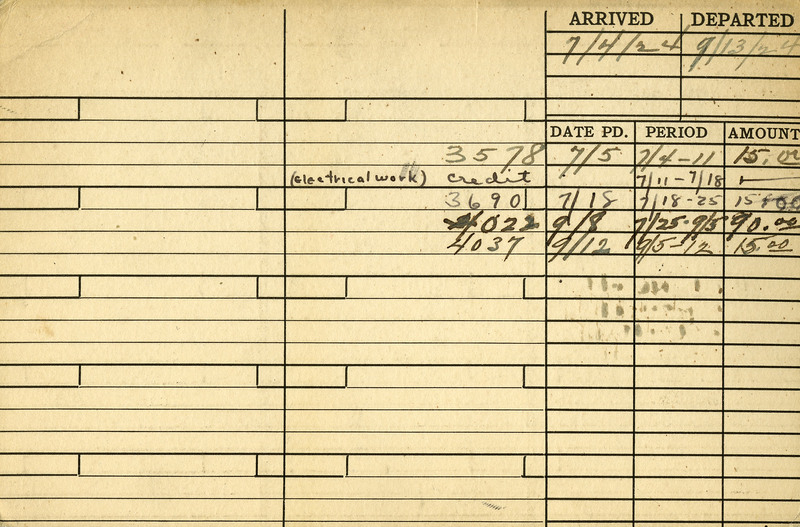 ARRIVED DEPARTED
7/4/24 9/13/24
DATE PD. PERIOD AMOUNT
3578 7/5 7/4-11 15.00
(electrical work) credit 7/11-7/18
3690 7/18 7/18-25 15.00
4022 9/8 7/25-9/5 90.00
4037 9/12 9/5-12 15.00